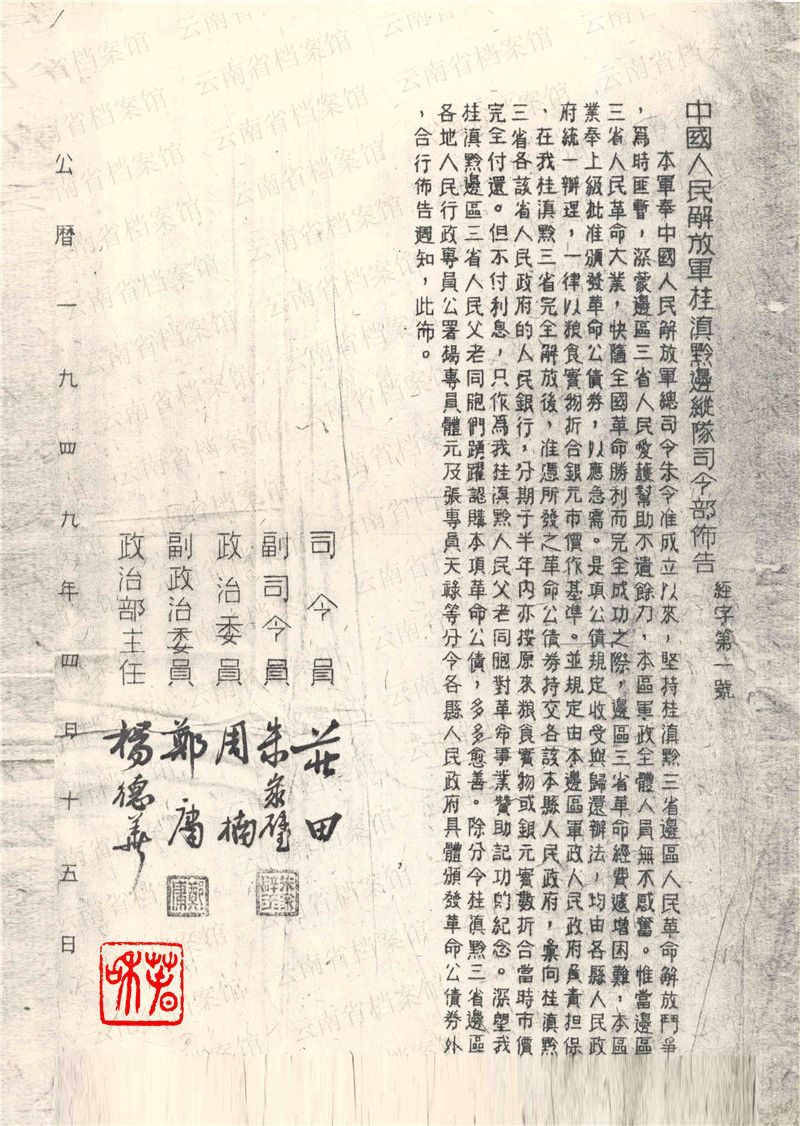 中國人民解放軍桂滇黔邊縱隊司令部佈告
經字第一號
本軍奉中國人民解放軍總司令朱令准成立以來，堅持桂滇黔三省邊區人民革命解放鬥爭
，爲時匪暫，深蒙邊區三省人民愛護幫助不遺餘力，本區軍政全體人員無不感奮。惟當邊區
三省人民革命大業，快隨全國革命勝利而完全成功之際，邊區三省革命經費遽增困難，本區
業奉上級批准頒發革命公債券，以應急需。是項公債規定收受與歸還辦法，均由各縣人民政
府統一辦理，一律以粮食實物折合銀元市價作基準。並規定由本邊區軍政人民政府負責担保
，在我桂滇黔三省完全解放後，准憑所發之革命公債券持交各該本縣人民政府，彙向桂滇黔
三省各該省人民政府的人民銀行，分期于半年內亦按原來粮食實物或銀元實數折合當時市價
完全付還。但不付利息，只作爲我桂滇黔人民父老同胞對革命事業贊助記功的紀念。深望我
桂滇黔邊區三省人民父老同胞們踴躍認購本項革命公債，多多愈善。除分令桂滇黔三省邊區
各地人民行政專員公署楊專員體元及張專員天祿等分令各縣人民政府具體頒發革命公債券外
，合行佈告週知，此佈。
司令員 莊田
副司令員 朱家璧
政治委員 周楠
副政治委員 鄭庸
政治部主任 楊德華
公曆一九四九年四月十五日
云南省档案馆